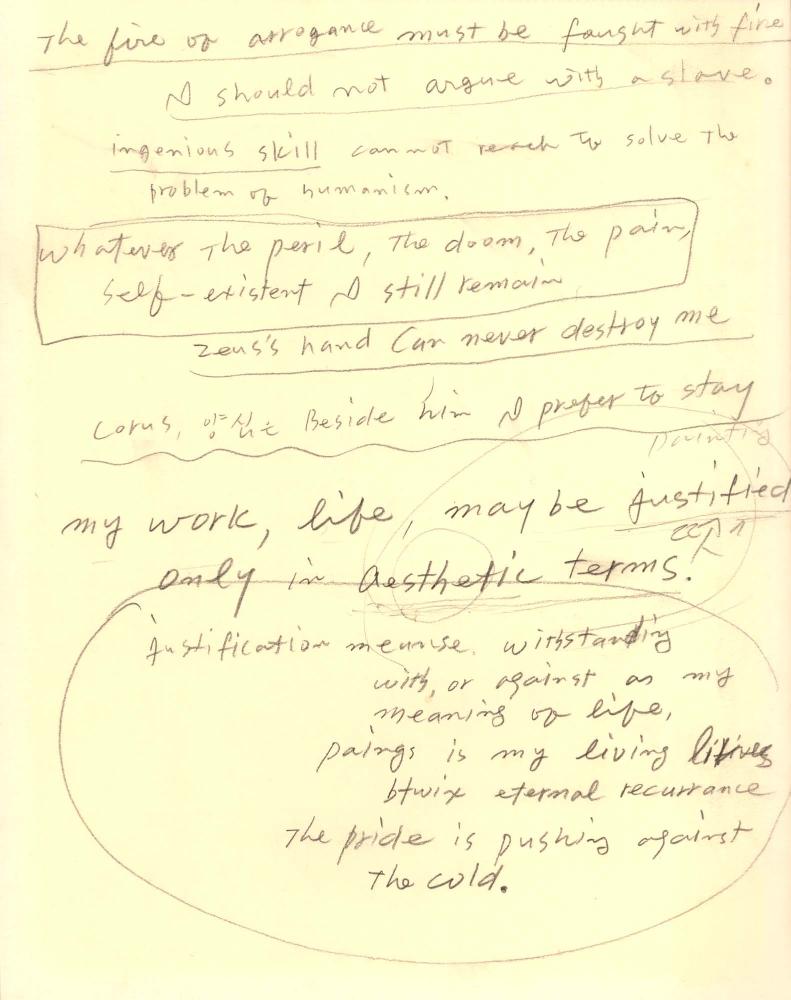 The fire of arrogance must be fought with fire
I should not argue with a slave.
ingenious skill cannot reach to solve the
problem of humanism.
Whatever The peril, The doom, The pain,
Self-existent I still remain
Zeus's hand Can never destroy me
Corus, 양심은 Beside him I prefer to stay
painting
my work, life, may be justified
only in aesthetic terms.
justification meanse. withstanding
with, or against as my
meaning of life,
paings is my living
btwix eternal recurrance
The pride is pushing against
The cold.